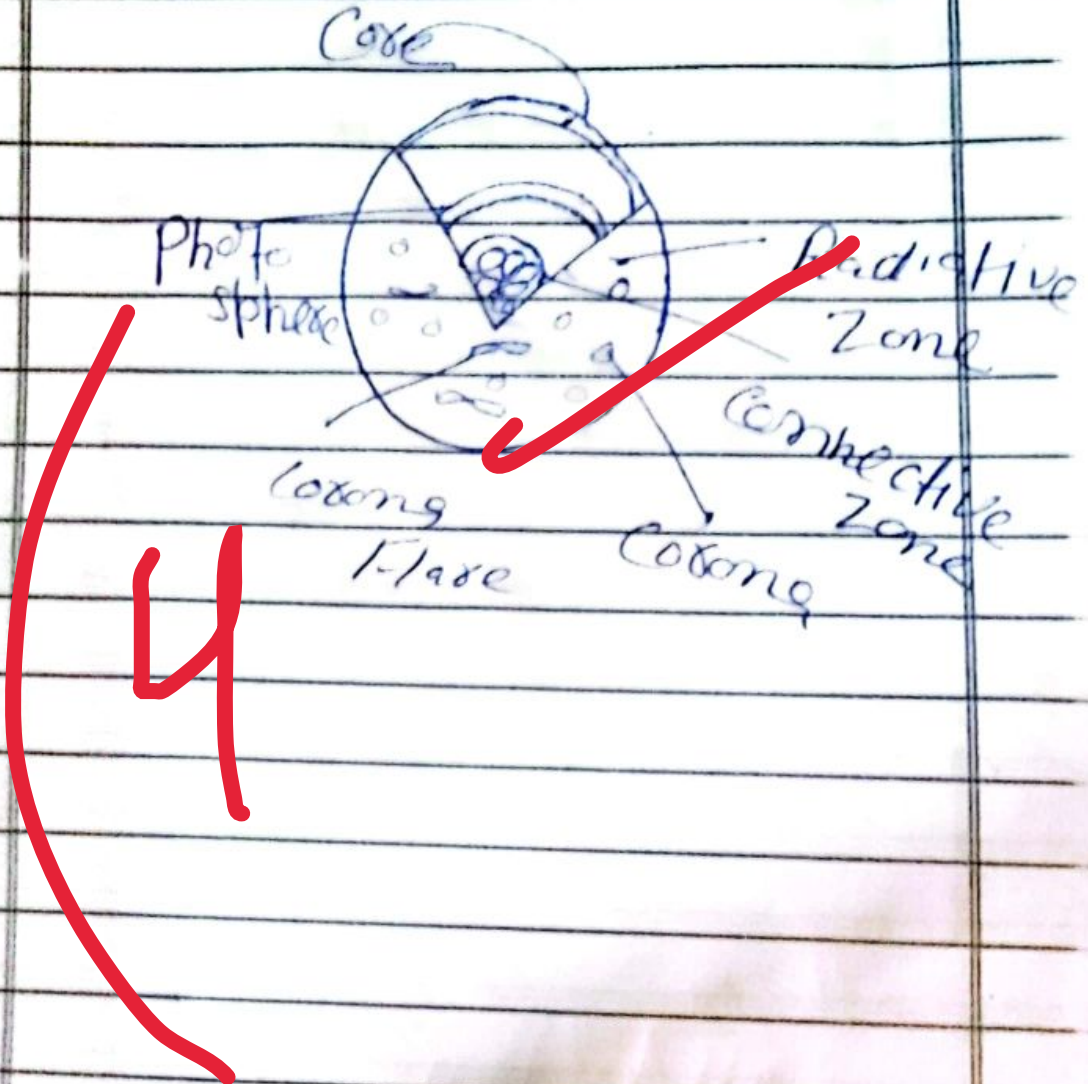 Core
Photo
sphere
Radiative
Zone
Connective
Zone
Corong
Flare
Corona
4